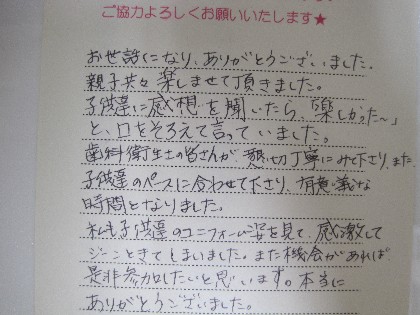 ご協力よろしくお願いいたします★
お世話になり、ありがとうございました。
親子共々楽しませて頂きました。
子供達に感想を聞いたら、「楽しかった〜」
と、口をそろえて言っていました。
歯科衛生士の皆さんが懇切丁寧にみて下さり、また、
子供達のペースに合わせて下さり、有意義な
時間となりました。
私も子供達のユニフォーム姿を見て、感激して
ジーンときてしまいました。また機会があれば
是非参加したいと思います。本当に
ありがとうございました。